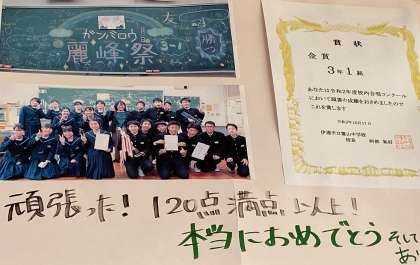 友
ガンバロウ
麗峰祭
3-1
勝つ
賞状
金賞
3年1組
あなたは令和2年度校内合唱コンクール
において頭書の成績をおさめましたので
これを賞します
令和2年10月17日
伊達市立霊山中学校
校長
頑張った！120点満点以上！
本当におめでとう そして
あ